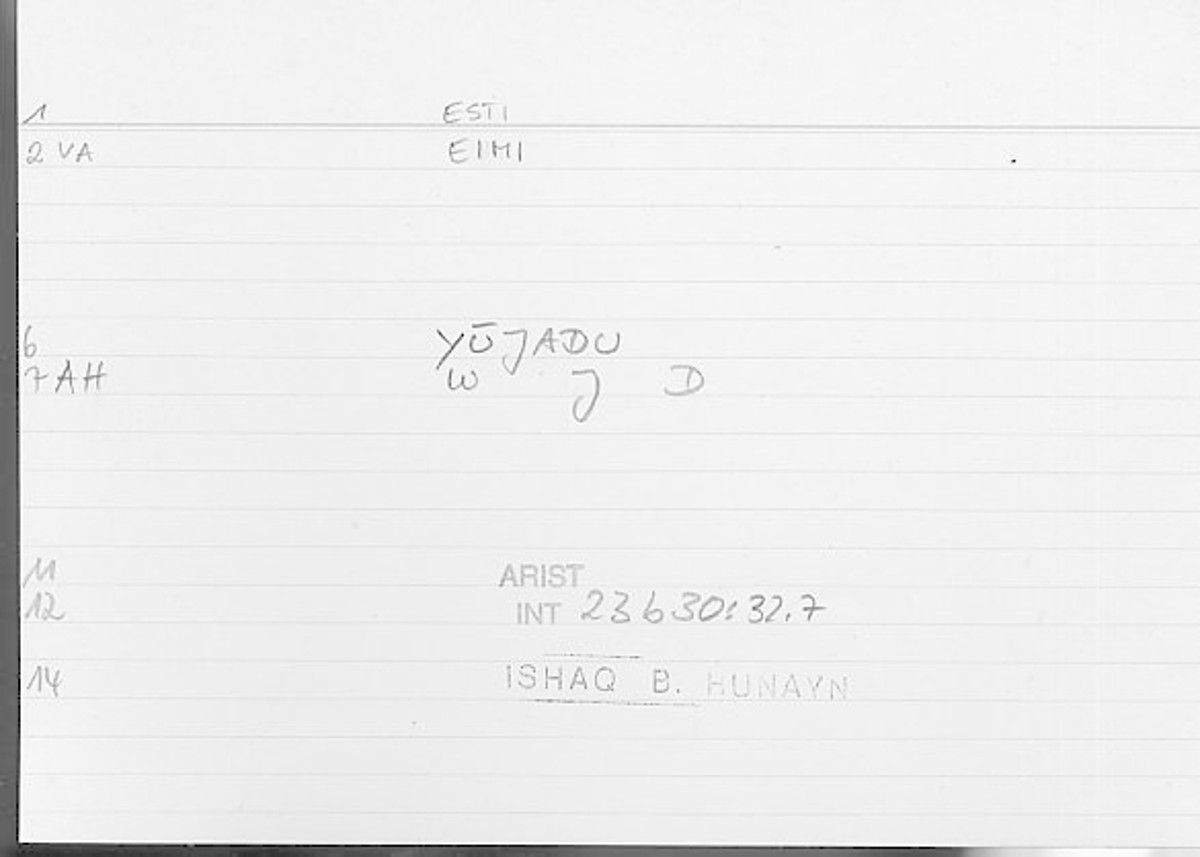 1 ESTI
2 VA EIMI
6 YŪJADU
7 AH W J D
11 ARIST
12 INT 23 b 30:32.7
14 ISHAQ B. HUNAYN